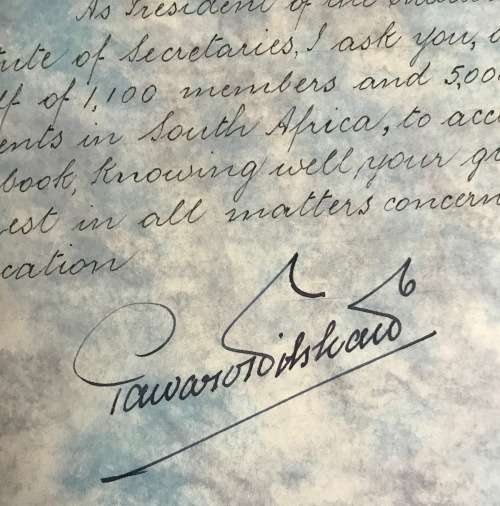 As President of the
tute of Secretaries, I ask you,
f of 1,100 members and 5,00
ents in South Africa, to acc
book, knowing well, your g
est in all matters concern
cation